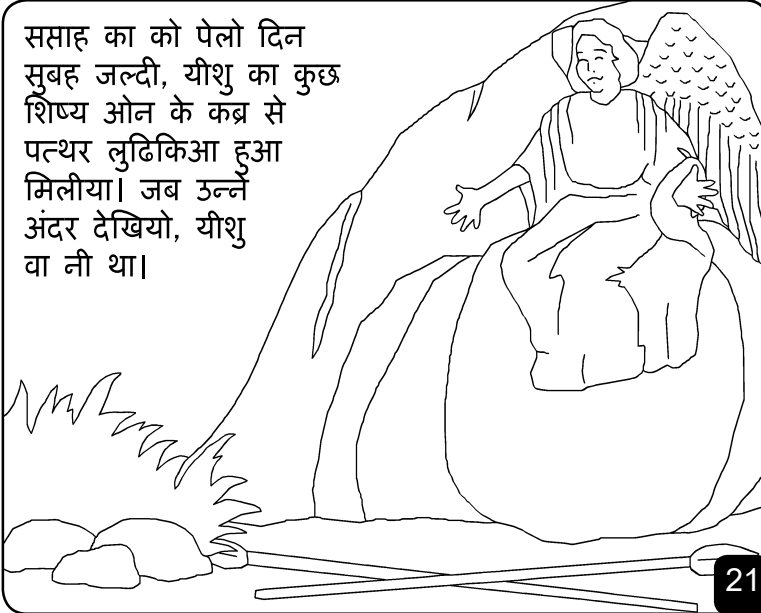 सप्ताह का को पेलो दिन
सुबह जल्दी, यीशु का कुछ
शिष्य ओन के कब्र से
पत्थर लुढिकिआ हुआ
मिलीया| जब उन्ने
अंदर देखियो, यीशु
वा नी था|
21